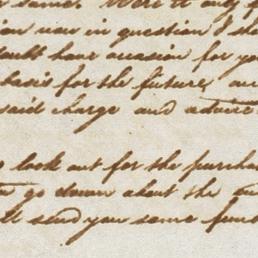 same. Were it only
ion now in question I sho
doubt have occasion for yo
basis for the future, and
said charge and advise
look out for the purcha
to go down about the
ll send you some fun